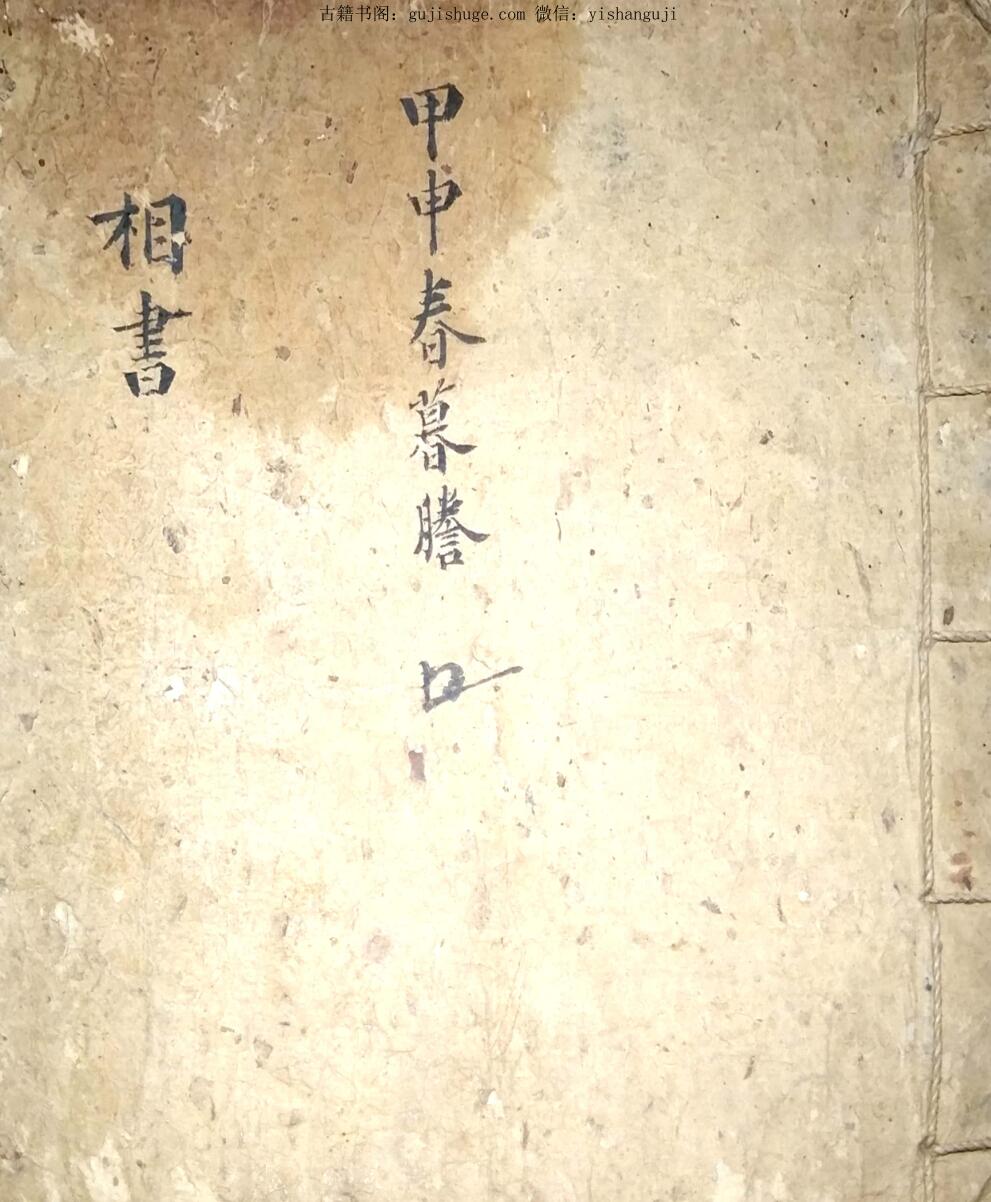 古籍书阁：gujishuge.com 微信：yishanguji
甲申春暮謄
相書